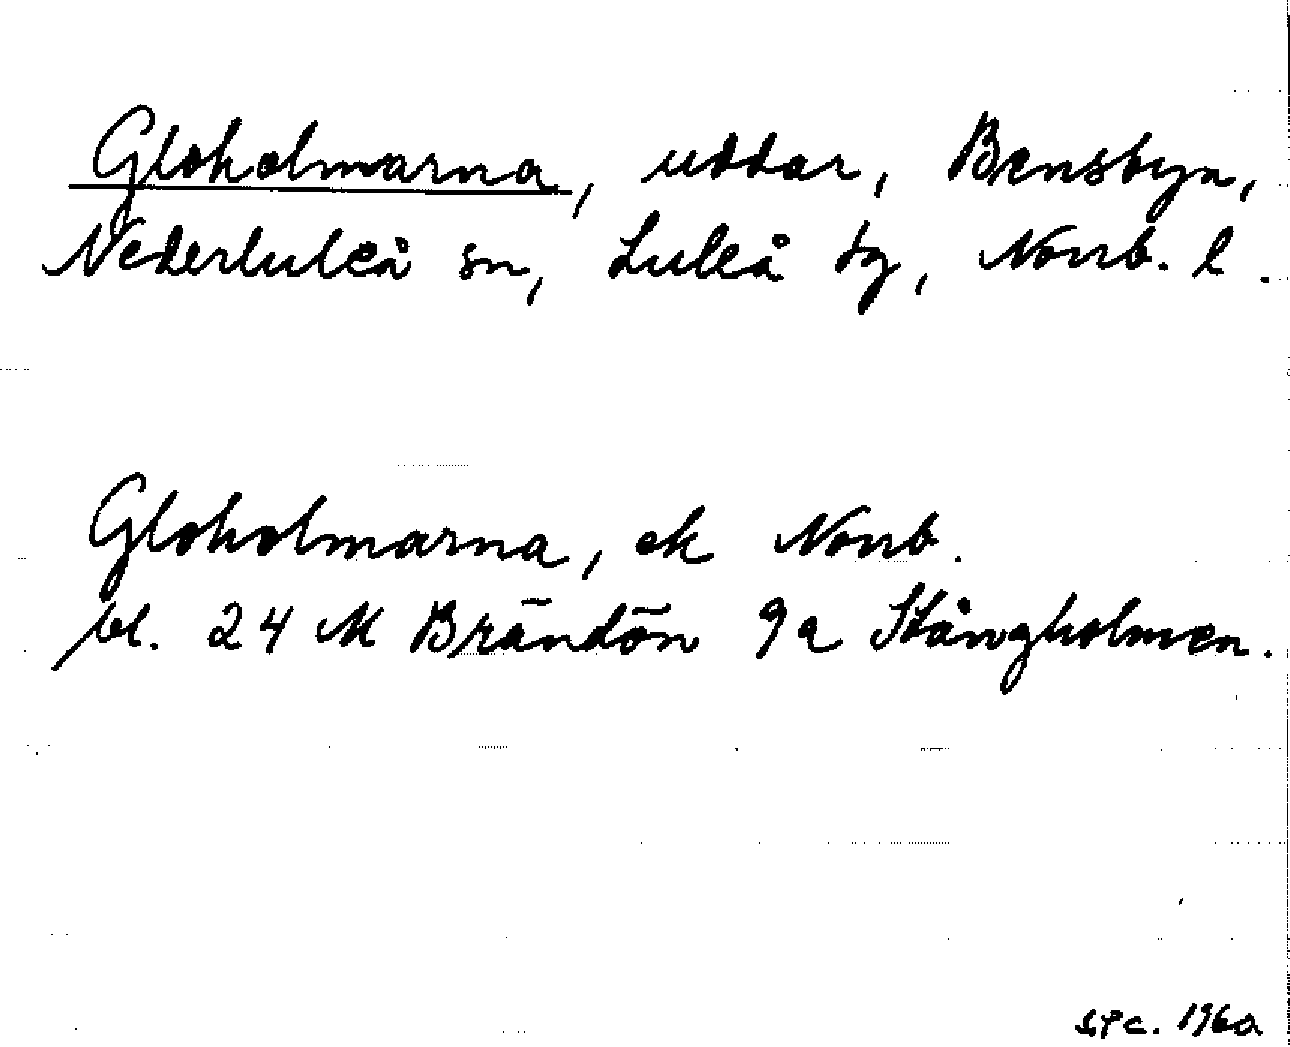 Gloholmarna, uddar, Bensbyn,
Nederluleå sn, Luleå tg, Norrb. l.
Gloholmarna, ek Norrb.
bl. 24 M Brändön 9a Stångholmen.
1960